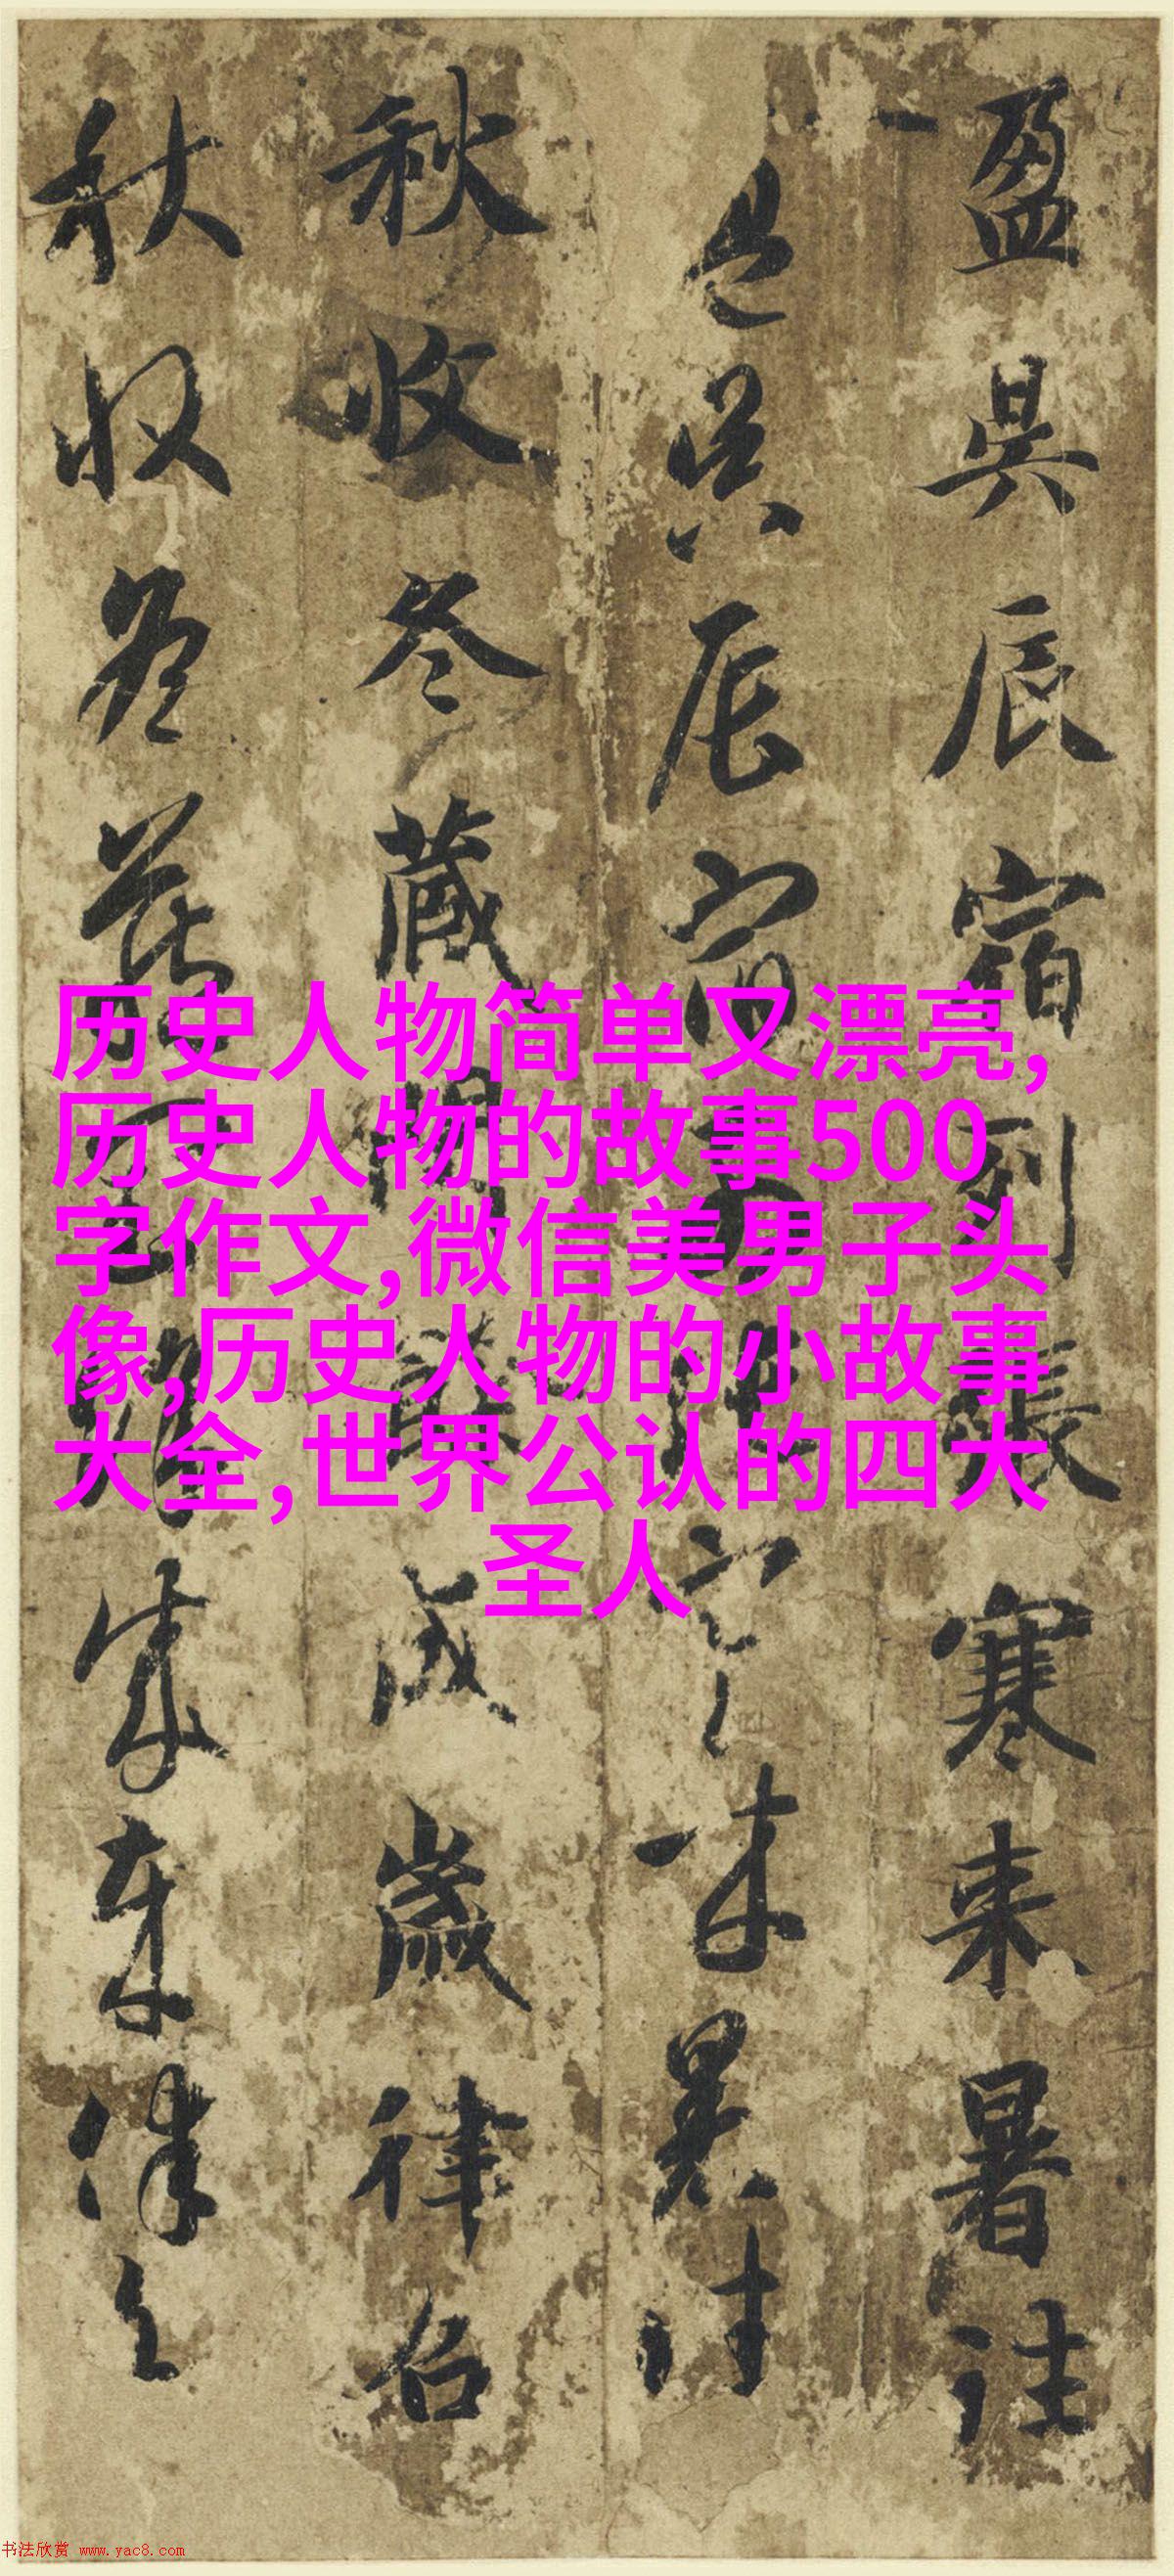 盈昃辰宿列張寒来暑往
盈昃辰宿寒来暑往
秋收冬藏閏成歲律召
秋收冬藏成歲律召
历史人物简单又漂亮,
历史人物的故事500
字作文,微信美男子头
像,历史人物的小故事
大全,世界公认的四大
圣人
书法欣赏 www.yac8.com